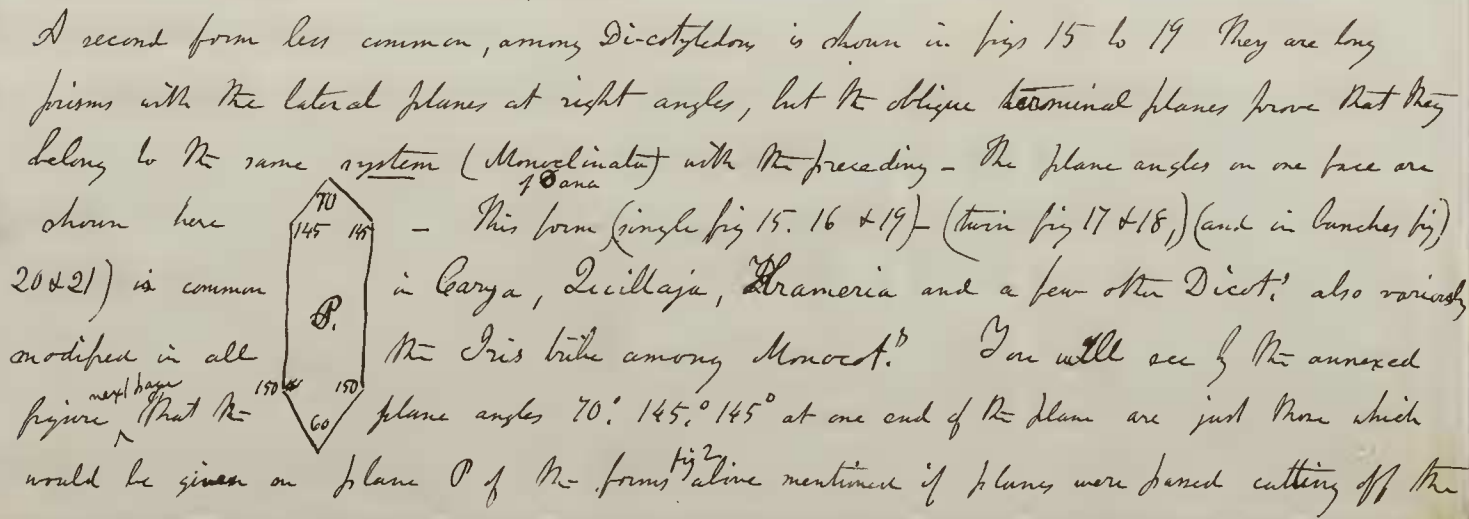 A second form less common, among Di-cotyledons is shown in figs 15 to 19 They are long
prisms with the lateral planes at right angles, but the oblique terminal planes prove that they
belong to the same system (Monoclinate) with the preceding – The plane angles on one face are
of Dana
shown here 70 145 145 – This form (single fig 15. 16 & 19) – (twin fig 17 & 18,) (and in bunches fig)
20 & 21) is common P. in Carya, Quillaja, Krameria and a few other Dicot.s also variously
modified in all the Iris tribe among Monocot.s You will see by the annexed
next page
figure that the 150 150 60 plane angles 70.° 145.° 145° at one end of the plane are just those which
fig 2
would be given on plane P of the forms above mentioned if planes were passed cutting off the